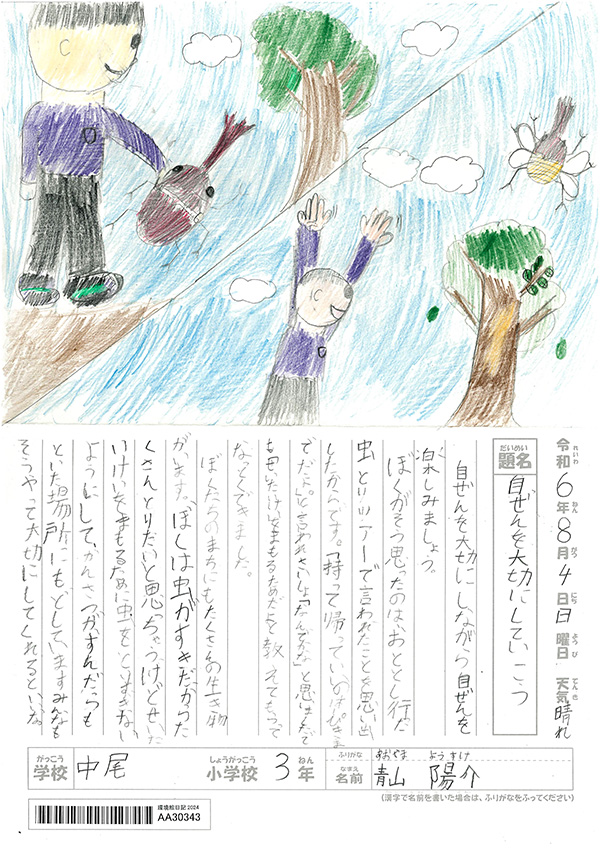 令和6年8月4日日曜日 天気晴れ
れいわ ねん がつ にち ようび てんき
だいめい
題名 自ぜんを大切にしていこう
自ぜんを大切にしながら自ぜんを
楽しみましょう。
ぼくがそう思ったのは、おととし行た
虫とりツアーで言われたことを思い出
したからです。「持って帰っていいのは
でだよ。」と言われさいしょ「なんでかな」と思い
たけいをまもるためだよと教えてもらって
なっとくできました。
ぼくたちのまちにもたくさんの生き物
がいます。ぼくは虫がすきだからた
くさんとりたいと思っちゃうけどせいた
いけいをまもるために虫をとりすぎない
ようにして、かんさつがすんだらも
といた場所にもどしていますみんなも
そうやって大切にしてくれるといいな
がっこう
学校 中尾
しょうがっこう ねん
小学校 3年
ふりがな あおやま ようすけ
なまえ
名前 青山 陽介
(漢字で名前を書いた場合は、ふりがなをふってください)
環境絵日記2024
AA30343